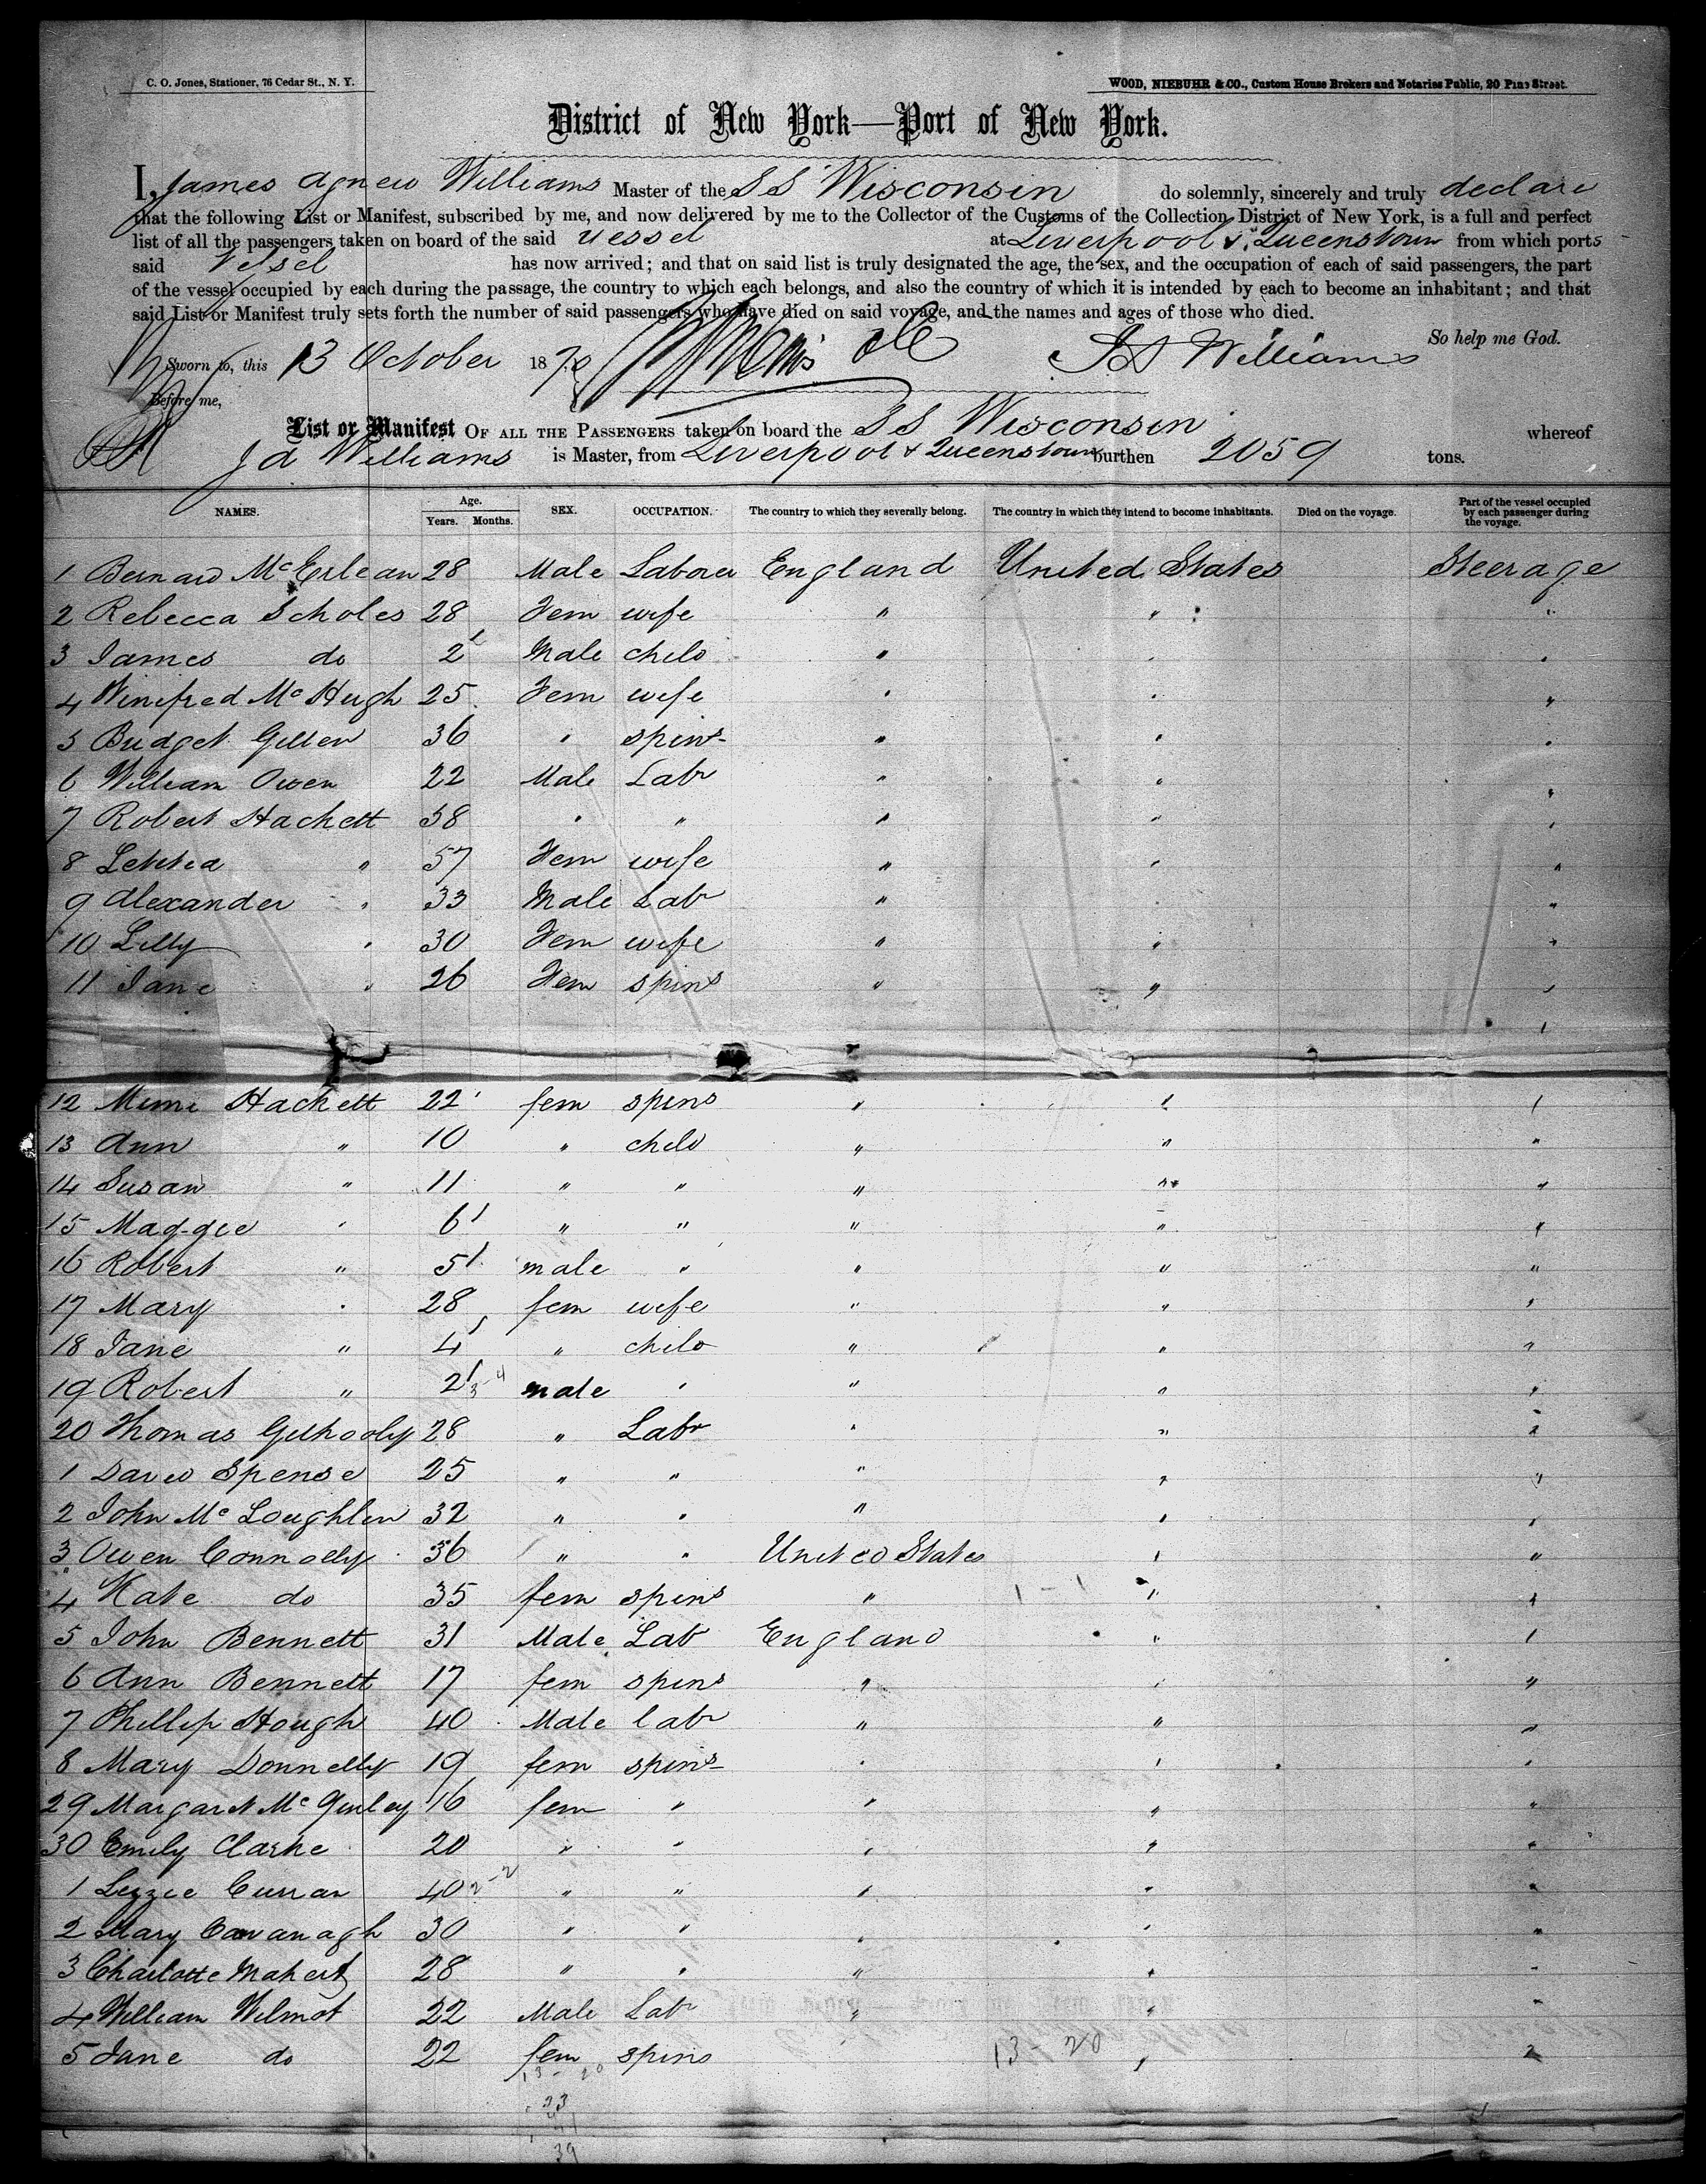 C. O. Jones, Stationer, 76 Cedar St., N. Y.
WOOD, NIEBUHR & CO., Custom House Brokers and Notaries Public, 20 Pine Street.
District of New York—Port of New York.
I, James Agnew Williams Master of the SS Wisconsin do solemnly, sincerely and truly declare
that the following List or Manifest, subscribed by me, and now delivered by me to the Collector of the Customs of the Collection District of New York, is a full and perfect
list of all the passengers taken on board of the said vessel at Liverpool & Queenstown from which ports
said Vessel has now arrived; and that on said list is truly designated the age, the sex, and the occupation of each of said passengers, the part
of the vessel occupied by each during the passage, the country to which each belongs, and also the country of which it is intended by each to become an inhabitant; and that
said List or Manifest truly sets forth the number of said passengers who have died on said voyage, and the names and ages of those who died.
So help me God.
Sworn to, this 13 October 1870 JA Williams
Before me,
List or Manifest OF ALL THE PASSENGERS taken on board the SS Wisconsin whereof
J A Williams is Master, from Liverpool & Queenstown burthen 2059 tons.
NAMES. Age. Years. Months. SEX. OCCUPATION. The country to which they severally belong. The country in which they intend to become inhabitants. Died on the voyage. Part of the vessel occupied by each passenger during the voyage.
1 Bernard McErlean 28 Male Laborer England United States Steerage
2 Rebecca Scholes 28 Fem wife " " "
3 James do 2 Male child " " "
4 Winifred McHugh 25 Fem wife " " "
5 Bridget Gillen 36 " spins " " "
6 William Owen 22 Male Labr " " "
7 Robert Hackett 58 " " " " "
8 Letitia " 57 Fem wife " " "
9 Alexander " 33 Male Lab " " "
10 Lilly " 30 Fem wife " " "
11 Jane " 26 Fem spins " " "
12 Mimi Hackett 22 fem spins " " "
13 Ann " 10 " child " " "
14 Susan " 11 " " " " "
15 Maggie " 6 " " " " "
16 Robert " 5 male " " " "
17 Mary " 28 fem wife " " "
18 Jane " 4 " child " " "
19 Robert " 2 male " " " "
20 Thomas Gilhooly 28 " Labr " " "
1 David Spense 25 " " " " "
2 John McLoughlin 32 " " " " "
3 Owen Connolly 36 " " United States " "
4 Kate do 35 fem spins " " "
5 John Bennett 31 Male Lab England " "
6 Ann Bennett 17 fem spins " " "
7 Phillip Hough 40 Male labr " " "
8 Mary Donnelly 19 fem spins " " "
29 Margaret McGinley 16 fem " " " "
30 Emily Clarke 20 " " " " "
1 Lizzie Curran 40 " " " " "
2 Mary Cavanagh 30 " " " " "
3 Charlotte 28 " " " " "
4 William Wilmot 22 Male Lab " " "
5 Jane do 22 fem spins 13-20 " "
13 - 20
39